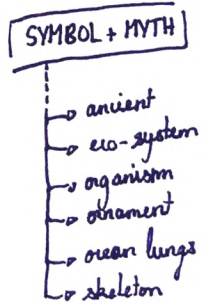 SYMBOL + MYTH
ancient
eco-system
organism
ornament
ocean lungs
skeleton